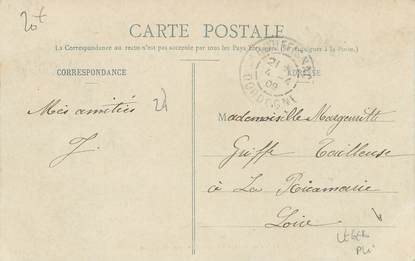 20f
CARTE POSTALE
La Correspondance au recto n'est pas acceptée par tous les Pays Étrangers. (Se renseigner à la Poste.)
CORRESPONDANCE
ADRESSE
21
4 - 4
09
DORDOGNE
Mes amitiés
J.
24
Mademoiselle Marguerite
Griffe Tailleuse
à La Ricamarie
Loire
pli